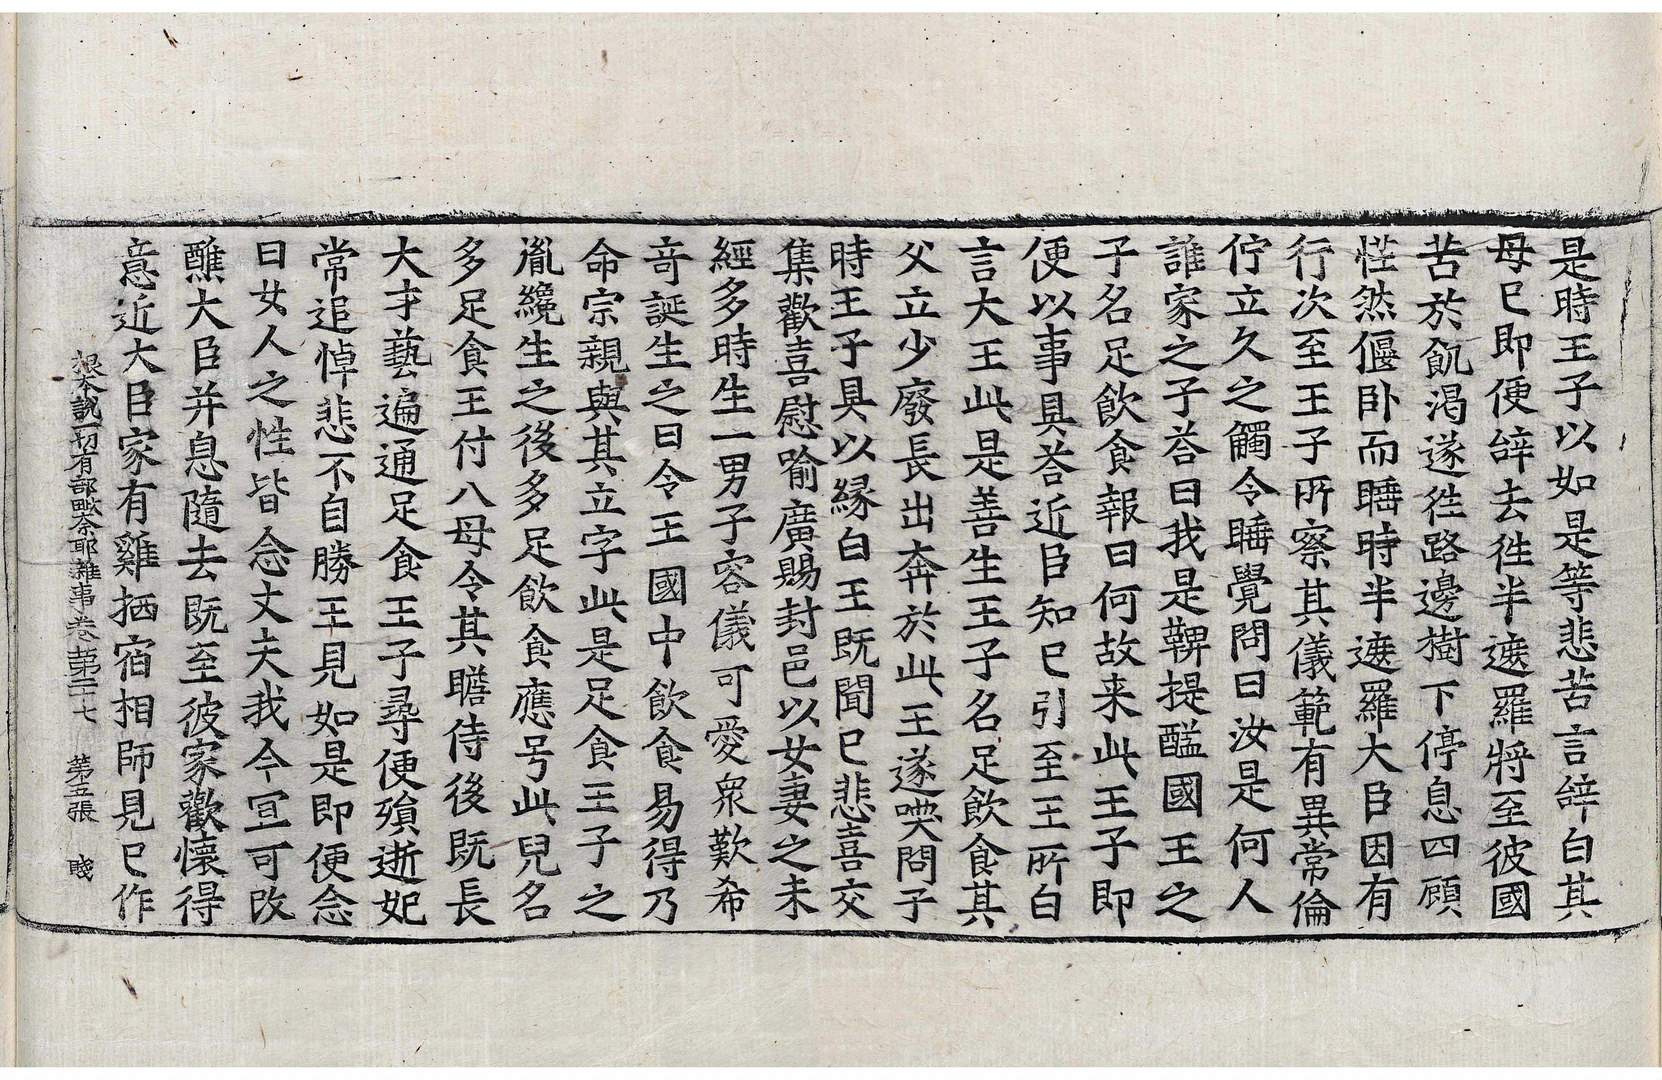 是時王子以如是等悲苦言辞白其
母已即便辞去徃半遮羅將至彼國
苦於飢渴遂徃路邊樹下停息四顧
恇然偃卧而睡時半遮羅大臣因有
行次至王子所察其儀範有異常倫
佇立久之觸令睡覺問曰汝是何人
誰家之子荅曰我是鞞提醯國王之
子名足飲食報曰何故来此王子即
便以事具荅近臣知已引至王所白
言大王此是善生王子名足飲食其
父立少廢長出奔於此王遂喚問子
時王子具以縁白王既聞已悲喜交
集歡喜慰喻廣賜封邑以女妻之未
經多時生一男子容儀可愛衆歎希
竒誕生之日令王國中飲食易得乃
命宗親與其立字此是足食王子之
胤纔生之後多足飲食應号此兒名
多足食王付八母令其瞻侍後既長
大才藝遍通足食王子尋便殞逝妃
常追悼悲不自勝王見如是即便念
曰女人之性皆念丈夫我今宜可改
醮大臣并息隨去既至彼家歡懷得
意近大臣家有雞栖宿相師見已作
根本說一切有部毗奈耶雜事卷第二十七 第五張 賤